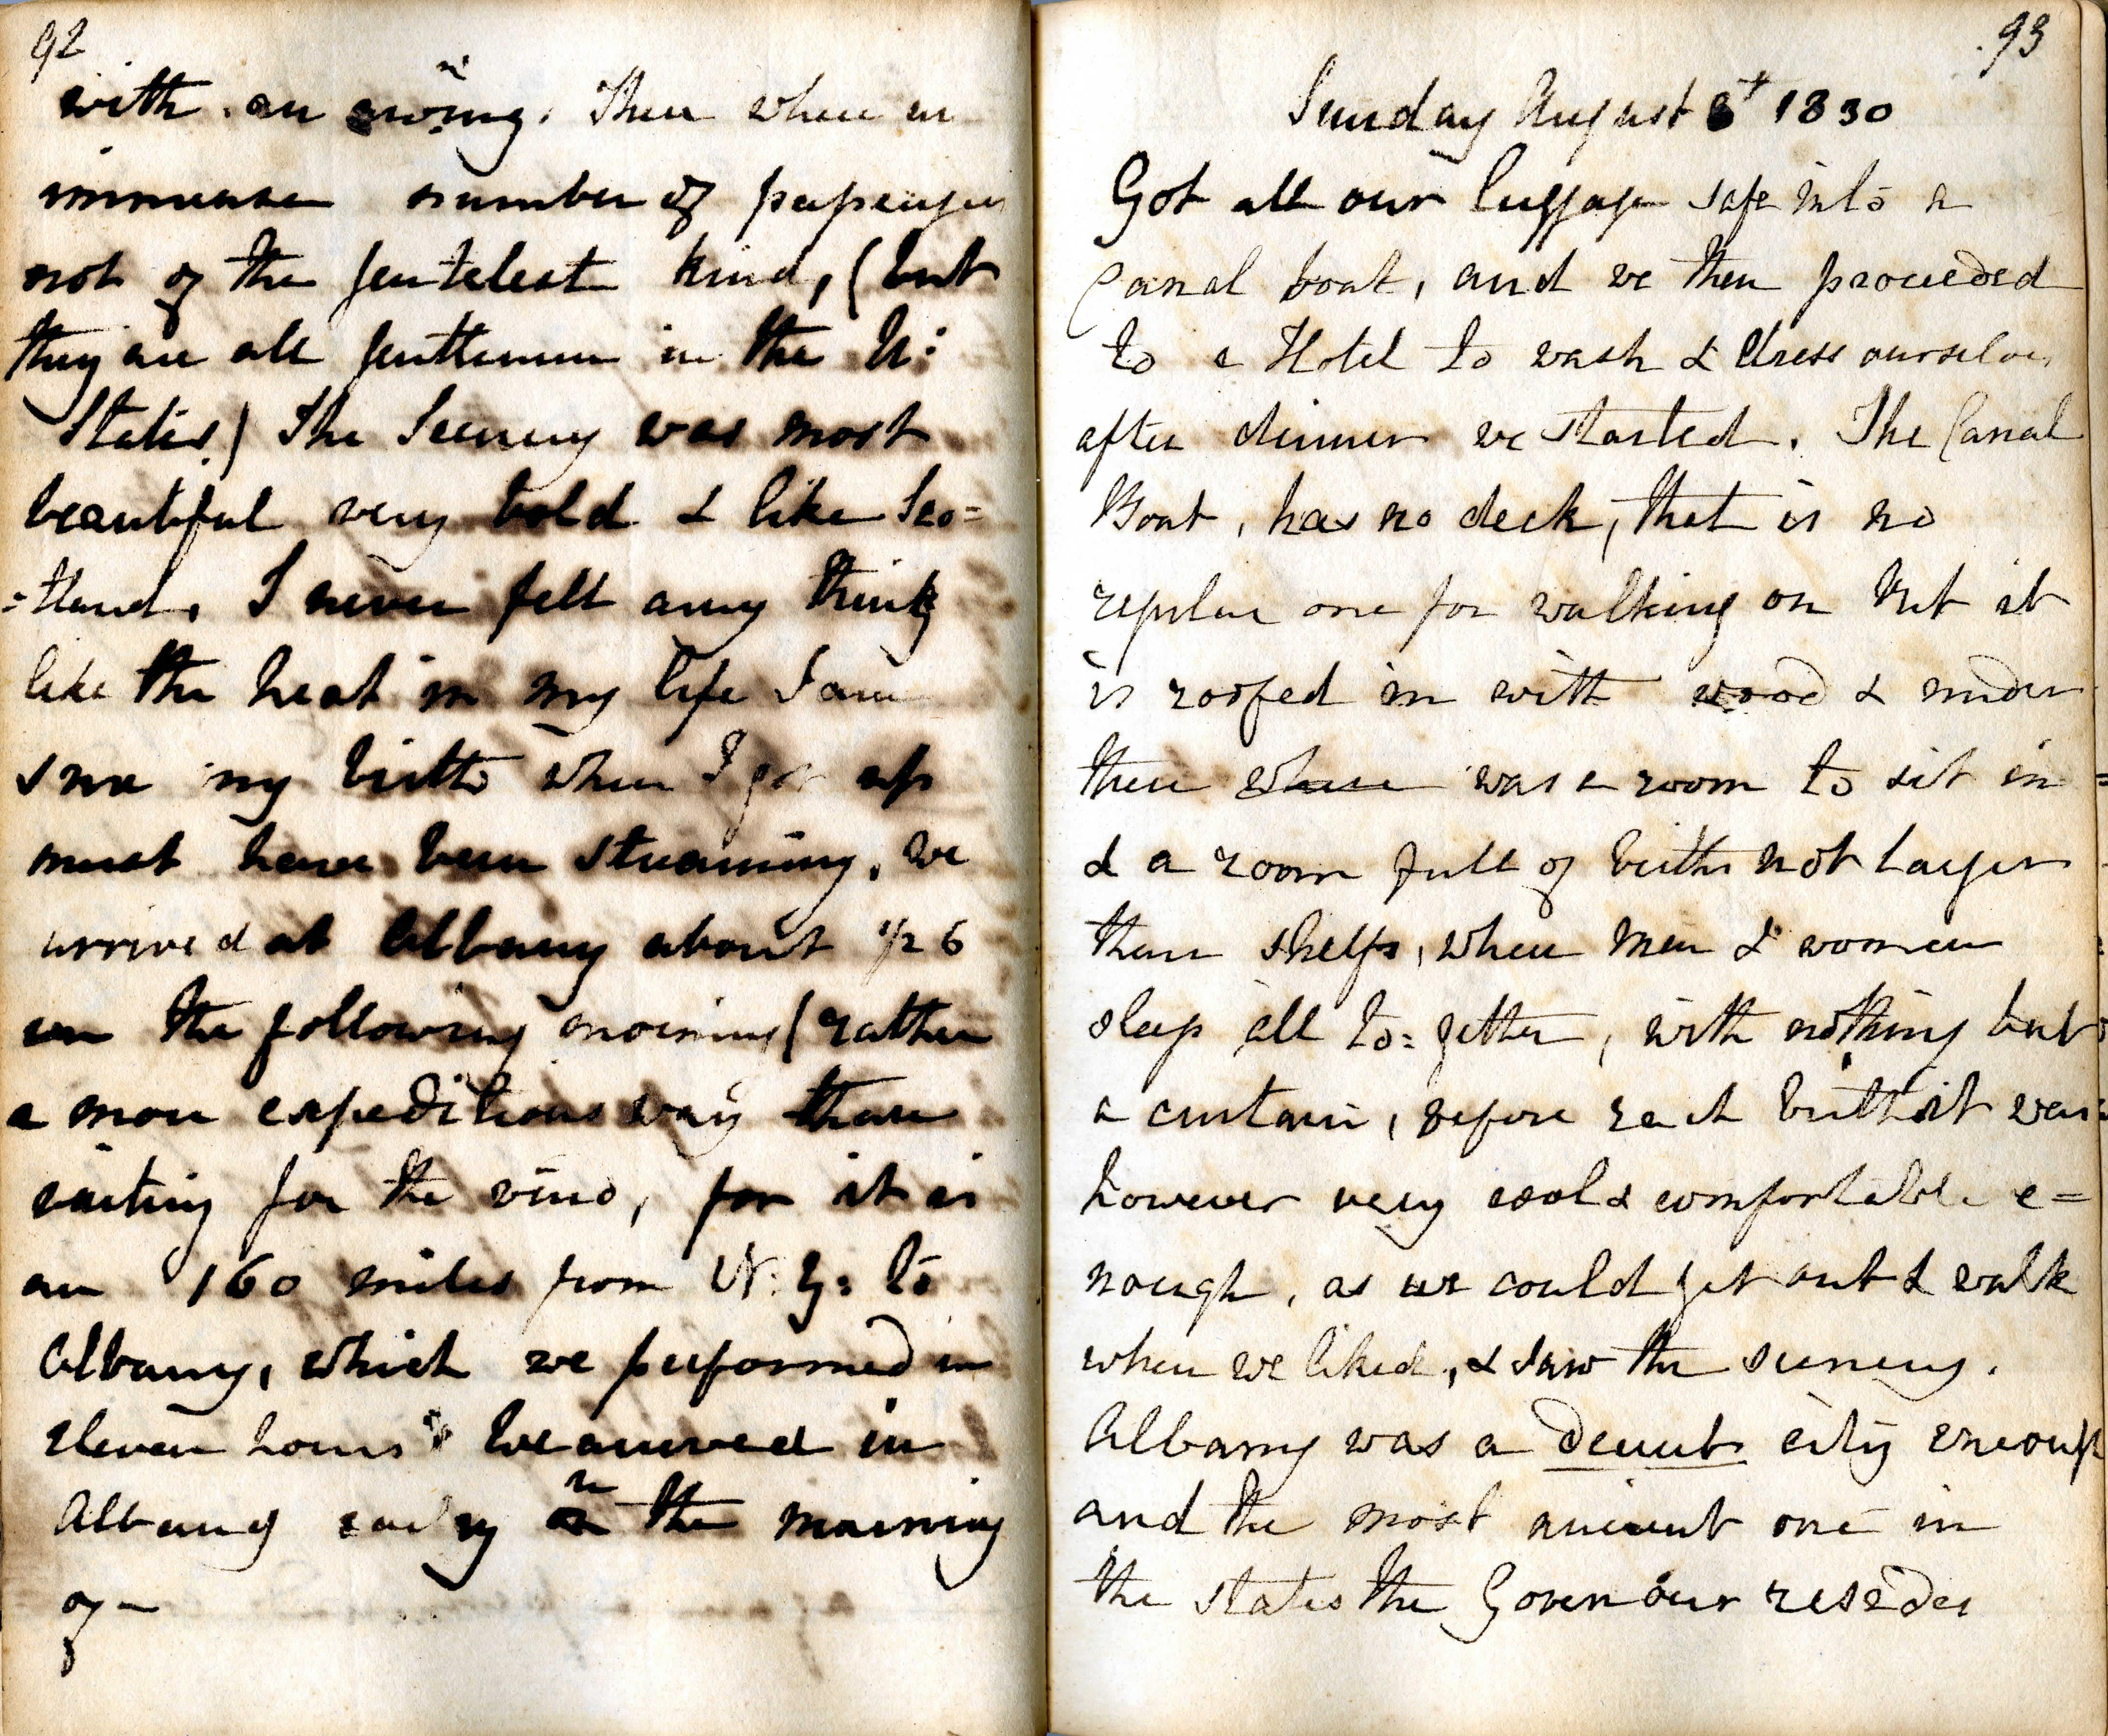 92
with an awning. There where an
immense number of passengers
not of the gentelest kind, (but
they are all gentlemen in the U:
States) The Scenery was most
beautiful very bold & like Sco=
=tland. I never felt any thing
like the heat in my life I am
sure my birth when I got up
must have been streaming. we
arrived at Albany about 1/2 6
on the following morning (rather
a more expeditious way than
waiting for the wind, for it is
an 160 miles from N: Y: to
Albany, which we performed in
eleven hours We arrived in
Albany early in the morning
of —
93
Sunday August 8t 1830
Got all our luggage safe into a
Canal boat, and we then proceeded
to a Hotel to wash & dress ourselves
after dinner we started. The Canal
Boat, has no deck, that is no
regular one for walking on but it
is roofed in with wood & under
there where was a room to sit in
& a room full of births not larger
than shelfs, where men & women
sleep all to=gether, with nothing but
a curtain, before each birth it was
however very cool & comfortable e=
nough, as we could get out & walk
when we liked, & saw the scenery.
Albany was a decent city enough
and the most ancient one in
the states the Govenour resides